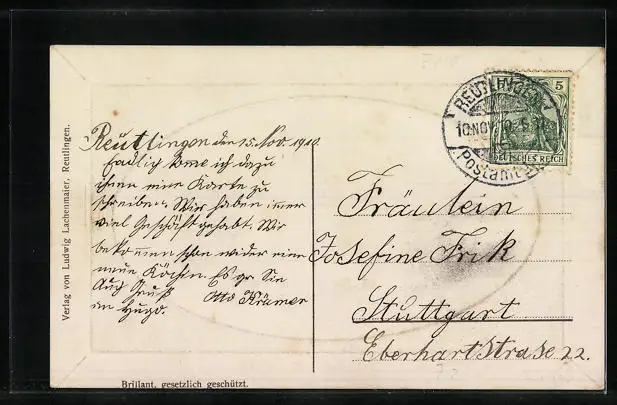 Verlag von Ludwig Lachenmaier, Reutlingen.
Reutlingen den 15. Nov. 1910.
Endlich kome ich dazu
ihnen eine Karte zu
schreiben. Wir haben immer
viel Geschäft gehabt. Wir
bekommen schon wider eine
neue Köchin. Es gr. Sie
Otto Krämer
Auch Gruß
an Hugo.
REUTLINGEN
10 NOV
Postamt
5
DEUTSCHES REICH
Fräulein
Josefine Frik
Stuttgart
Eberhartstrase 22.
Brillant, gesetzlich geschützt.